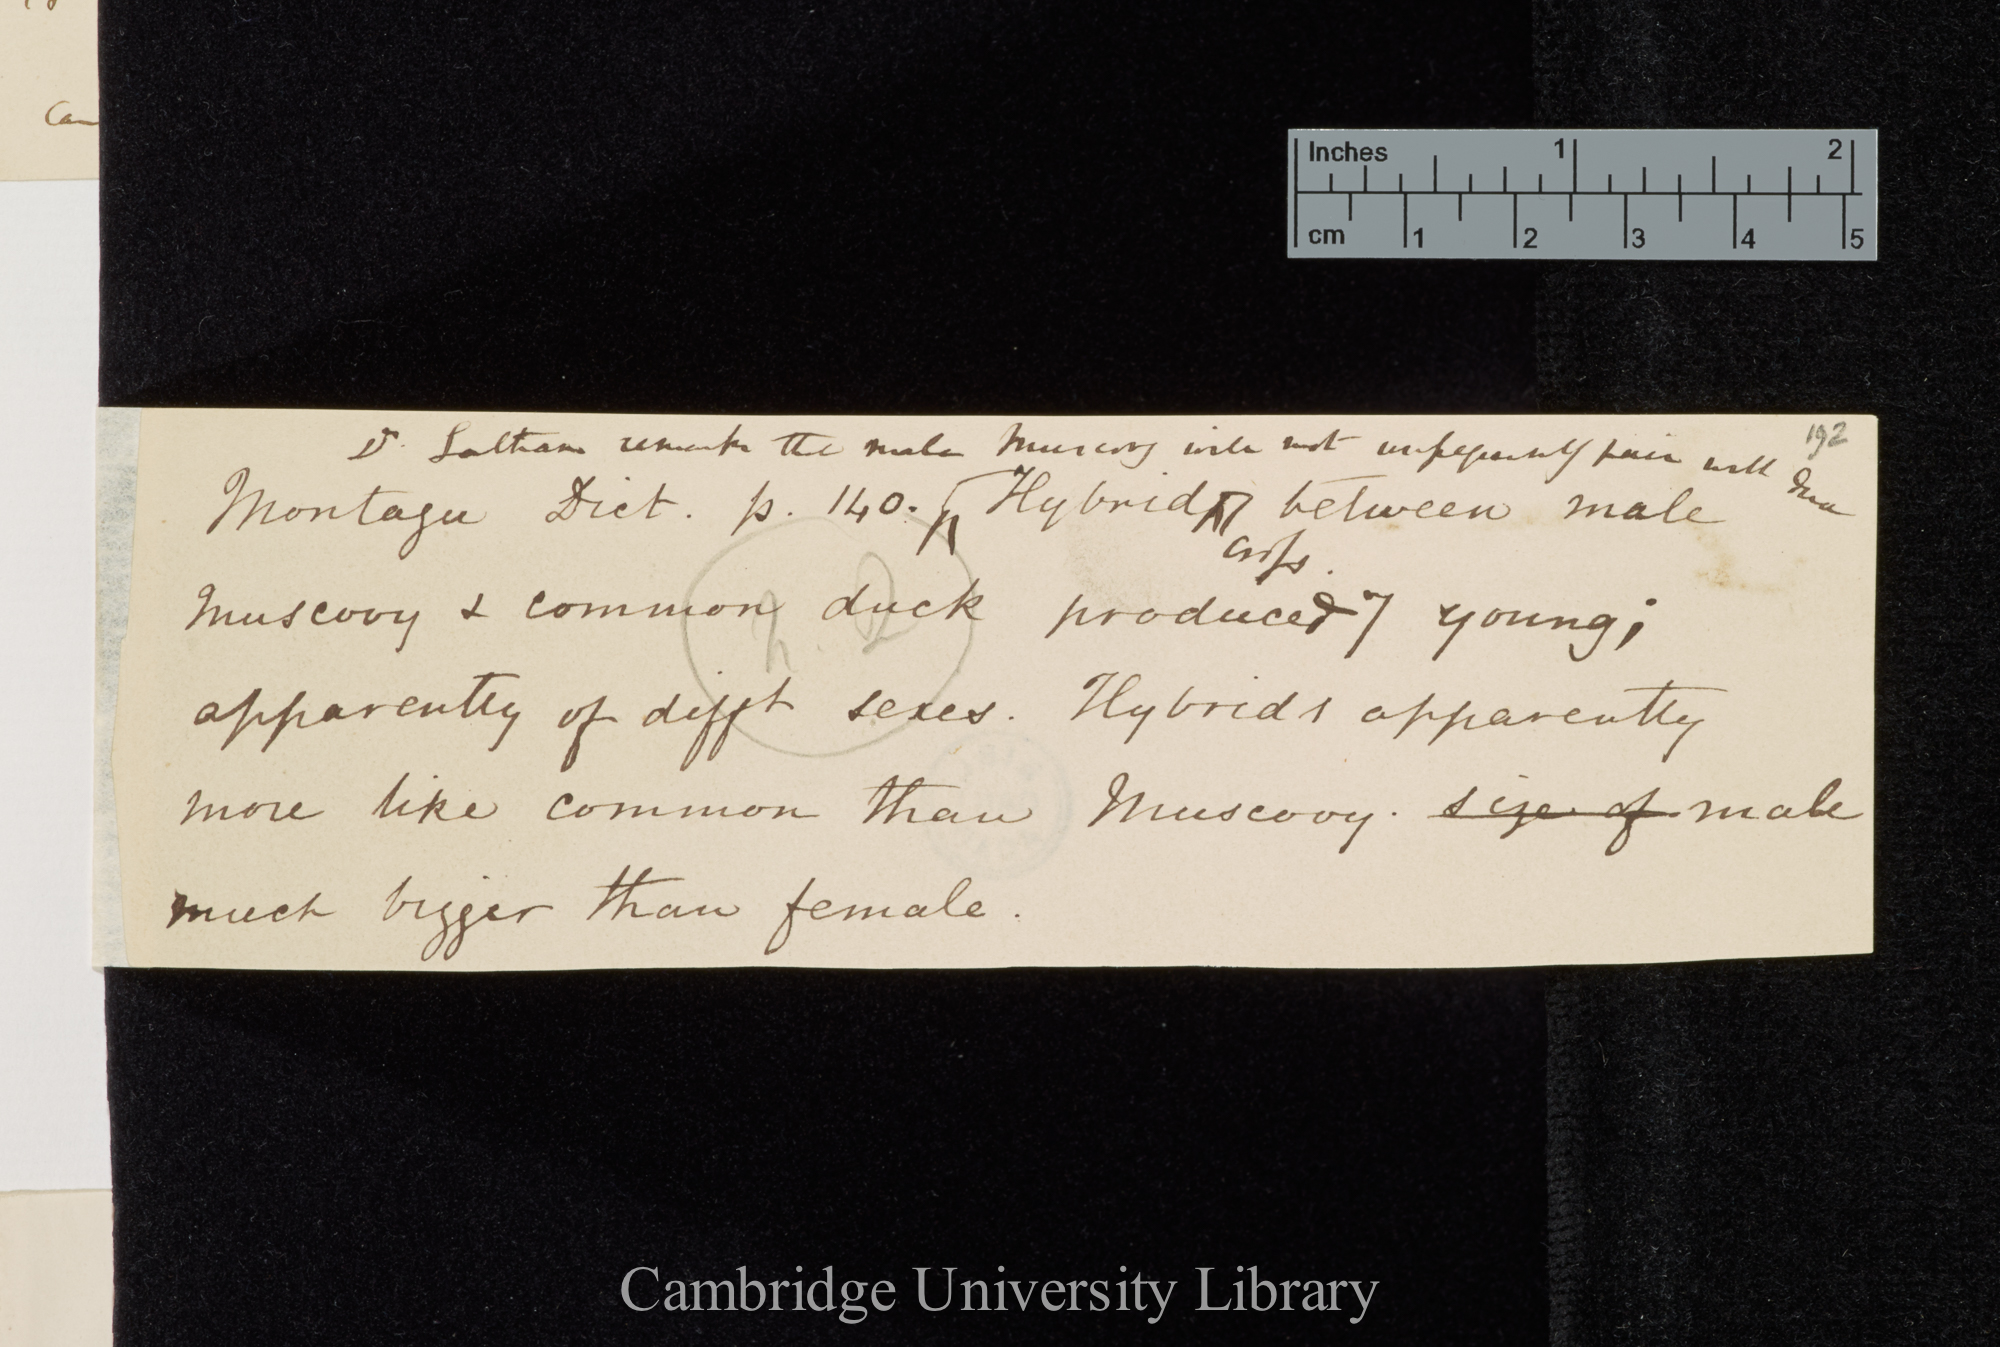 Inches 1 2
cm 1 2 3 4 5
Can
192
Dr. Latham remarks the male Muscovy will not unfrequently pair with Duck
Montagu Dict. p. 140. Hybrid between male
cross.
Muscovy & common duck produced 7 young;
apparently of difft sexes. Hybrids apparently
more like common than Muscovy. size of male
much bigger than female.
Cambridge University Library